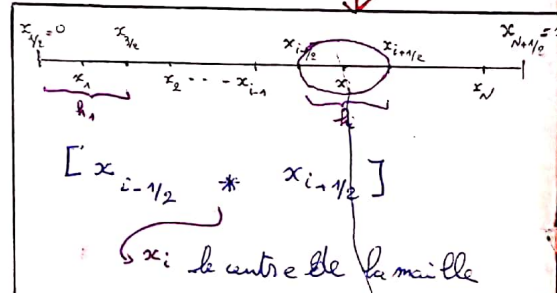 x_{1/2} = 0 x_{3/2} x_{i-1/2} x_{i+1/2} x_{N+1/2} =
x_1 x_2 - - - x_{i-1} x_i x_N
h_1 h_i
[ x_{i-1/2} * x_{i+1/2} ]
x_i le centre de la maille